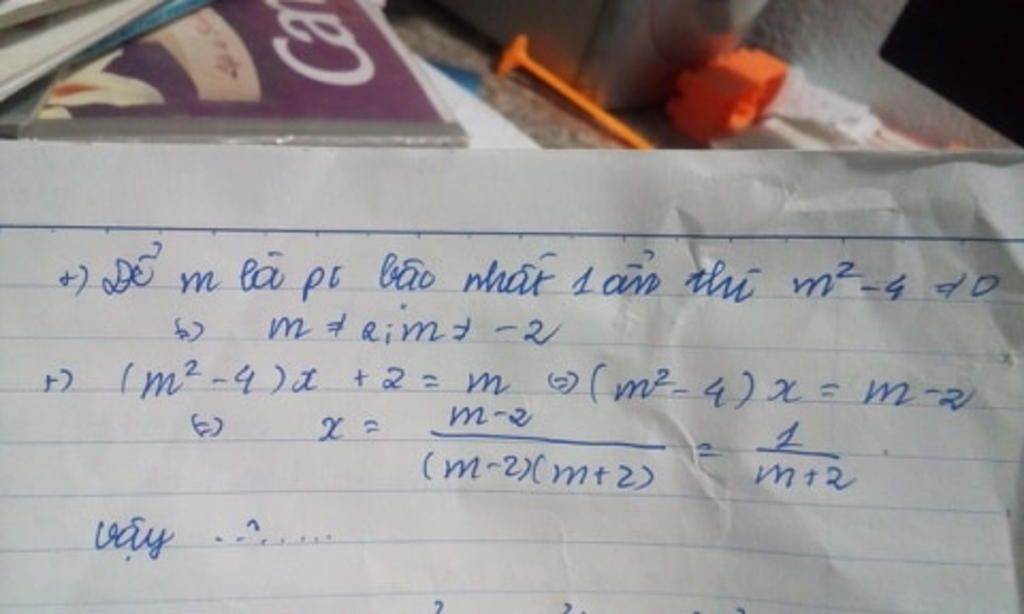 Can
+) Để m là pt bậc nhất 1 ẩn thì m² - 4 ≠ 0
⇔ m ≠ 2; m ≠ -2
+) (m² - 4)x + 2 = m ⇔ (m² - 4)x = m - 2
⇔ x = m-2 / (m-2)(m+2) = 1 / m+2
Vậy .......